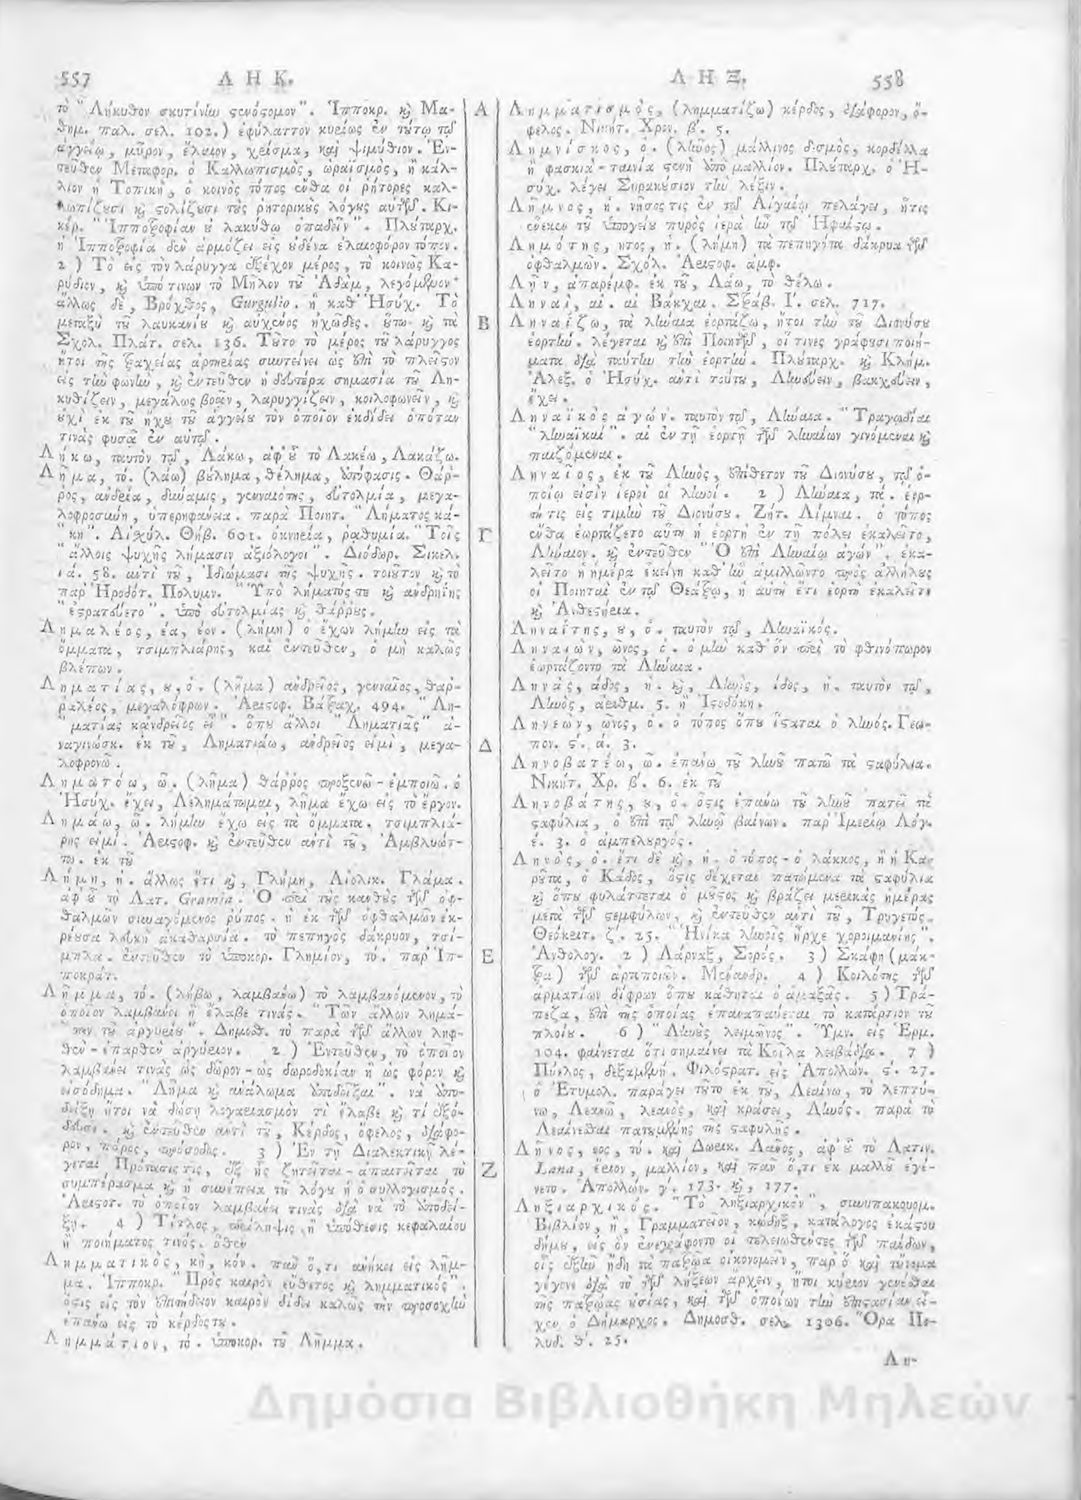 557 ΛΗΚ.
το " Λήκυθον σκυτίνην στενόστομον". Ἱπποκρ. καὶ Μα-
θημ. παλ. σελ. 102.) ἐφύλαττον κυρίως ἐν τούτῳ τῷ
ἀγγείῳ, μῦρον, ἔλαιον, χρίσμα, καὶ ψιμύθιον. Ἐν-
τεῦθεν Μεταφορ. ὁ Καλλωπισμὸς, ὡραϊσμὸς, ἢ κάλ-
λιον ἡ Τοπικὴ, ὁ κοινὸς τόπος ἔνθα οἱ ῥήτορες καλ-
λωπίζουσι καὶ στολίζουσι τοὺς ῥητορικοὺς λόγους αὐτῶν. Κι-
κέρ. "Ἱπποτροφίαν οὐ λακύθῳ ὀπαδεῖν". Πλούταρχ.
ἡ Ἱπποτροφία δὲν ἁρμόζει εἰς οὐδένα ἐλαιοφόρον τόπον.
2 ) Τὸ εἰς τὸν λάρυγγα ἐξέχον μέρος, τὸ κοινῶς Κα-
ρύδιον, καὶ ὑπό τινων τὸ Μῆλον τοῦ Ἀδάμ, λεγόμενον
ἄλλως δὲ, Βρόχθος, Gurgulio. ἢ καθ' Ἡσύχ. Τὸ
μεταξὺ τοῦ λαυκανίου καὶ αὐχένος ἠχῶδες. οὕτω καὶ τὰ
Σχολ. Πλάτ. σελ. 136. Τοῦτο τὸ μέρος τοῦ λάρυγγος
ἤτοι τῆς τραχείας ἀρτηρίας συντείνει ὡς ἐπὶ τὸ πλεῖστον
εἰς τὴν φωνὴν, καὶ ἐντεῦθεν ἡ δευτέρα σημασία τοῦ Λη-
κυθίζειν, μεγάλως βοᾶν, λαρυγγίζειν, κοιλοφωνεῖν, καὶ
οὐχὶ ἐκ τοῦ ἤχου τοῦ ἀγγείου τὸν ὁποῖον ἐκδίδει ὁπόταν
τινὰς φυσᾷ ἐν αὐτῷ.
Λήκω, ταυτὸν τῷ, Λάκω, ἀφ' οὗ τὸ Λακέω, Λακάζω.
Λῆμα, τό. (λάω) βούλημα, θέλημα, ἀπόφασις. Θάρ-
ρος, ἀνδρεία, δύναμις, γενναιότης, εὐτολμία, μεγα-
λοφροσύνη, ὑπερηφάνεια. παρὰ Ποιητ. "Λήματος κά-
"κη". Αἰσχύλ. Θήβ. 601. ὀκνηρία, ῥαθυμία. "Τοῖς
"ἄλλοις ψυχῆς λήμασιν ἀξιόλογοι". Διόδωρ. Σικελ.
ιά. 58. ἀντὶ τοῦ, Ἰδιώμασι τῆς ψυχῆς. τοιοῦτον καὶ τὸ
παρ' Ἡροδότ. Πολυμν. "Ὑπὸ λήματός τε καὶ ἀνδρηΐης
"ἐστρατεύετο". ὑπὸ εὐτολμίας καὶ θάρρους.
Λημαλέος, έα, έον. (λήμη) ὁ ἔχων λήμην εἰς τὰ
ὄμματα, τσιμπλιάρης, καὶ ἐντεῦθεν, ὁ μὴ καλῶς
βλέπων.
Ληματίας, ου, ὁ. (λῆμα) ἀνδρεῖος, γενναῖος, θαρ-
ραλέος, μεγαλόφρων. Ἀριστοφ. Βάτραχ. 494. "Λη-
"ματίας κἀνδρεῖος εἶ". ὅπου ἄλλοι "Ληματιᾷς" ἀ-
ναγινώσκ. ἐκ τοῦ, Ληματιάω, ἀνδρεῖος εἰμί, μεγα-
λοφρονῶ.
Ληματόω, ῶ. (λῆμα) θάρρος προξενῶ - ἐμποιῶ. ὁ
Ἡσύχ. ἔχει, Λελημάτωμαι, λῆμα ἔχω εἰς τὸ ἔργον.
Λημάω, ῶ. λήμην ἔχω εἰς τὰ ὄμματα. τσιμπλιά-
ρης εἰμί. Ἀριστοφ. καὶ ἐντεῦθεν ἀντὶ τοῦ, Ἀμβλυώτ-
τω. ἐκ τοῦ
Λήμη, ἡ. ἄλλως ἔτι καὶ, Γλήμη, Αἰολικ. Γλάμα.
ἀφ' οὗ τὸ Λατ. Gramia. Ὁ περὶ τοὺς κανθοὺς τῶν ὀφ-
θαλμῶν συναγόμενος ῥύπος. ἡ ἐκ τῶν ὀφθαλμῶν ἐκ-
ρέουσα λευκὴ ἀκαθαρσία. τὸ πεπηγὸς δάκρυον, τσί-
μπλα. ἐντεῦθεν τὸ ὑποκορ. Γλημίον, τό. παρ' Ἱπ-
ποκράτ.
Λῆμμα, τό. (λήβω, λαμβάνω) τὸ λαμβανόμενον, τὸ
ὁποῖον λαμβάνει ἢ ἔλαβέ τινάς. "Τῶν ἄλλων λημά-
"των τοῦ ἀργυρίου". Δημοσθ. τὸ παρὰ τῶν ἄλλων ληφ-
θὲν - ἐπαρθὲν ἀργύριον. 2 ) Ἐντεῦθεν, τὸ ὁποῖον
λαμβάνει τινὰς ὡς δῶρον - ὡς δωροδοκίαν ἢ ὡς φόρον καὶ
εἰσόδημα. "Λῆμα καὶ ἀνάλωμα ἀποδεῖξαι". νὰ ἀπο-
δείξῃ ἤτοι νὰ δώσῃ λογαριασμὸν τί ἔλαβε καὶ τί ἐξό-
δευσε. καὶ ἐντεῦθεν ἀντὶ τοῦ, Κέρδος, ὄφελος, διάφο-
ρον, πόρος, πρόσοδος. 3 ) Ἐν τῇ Διαλεκτικῇ λέ-
γεται Πρότασίς τις, ἐξ ἧς ζητεῖται - ἀπαιτεῖται τὸ
συμπέρασμα καὶ ἡ συνέπεια τοῦ λόγου ἢ ὁ συλλογισμός.
Ἀριστοτ. τὸ ὁποῖον λαμβάνει τινὰς διὰ νὰ τὸ ἀποδεί-
ξῃ. 4 ) Τίτλος, περίληψις, ἢ ὑπόθεσις κεφαλαίου
ἢ ποιήματος τινός. ὅθεν
Λημματικὸς, κὴ, κόν. πᾶν ὅ,τι ἀνήκει εἰς λῆμ-
μα. Ἱπποκρ. "Πρὸς καιρὸν εὔθετος καὶ λημματικὸς".
ὅστις εἰς τὸν ἐπιτήδειον καιρὸν δίδει καλῶς τὴν προσοχὴν
ἐπάνω εἰς τὸ κέρδος του.
Λημμάτιον, τό. ὑποκορ. τοῦ Λῆμμα.
Α
Β
Γ
Δ
Ε
Ζ
ΛΗΞ. 558
Λημματισμὸς, (λημματίζω) κέρδος, διάφορον, ὄ-
φελος. Νικήτ. Χρον. β'. 5.
Λημνίσκος, ὁ. (λῆνος) μάλλινος δεσμὸς, κορδέλλα
ἢ φασκιὰ - ταινία στενὴ ἀπὸ μαλλίον. Πλούταρχ. ὁ Ἡ-
σύχ. λέγει Συρακούσιον τὴν λέξιν.
Λῆμνος, ἡ. νῆσός τις ἐν τῷ Αἰγαίῳ πελάγει, ἥτις
ἕνεκεν τοῦ ὑπογείου πυρὸς ἱερὰ ἦν τῷ Ἡφαίστῳ.
Λημότης, ητος, ἡ. (λήμη) τὰ πεπηγότα δάκρυα τῶν
ὀφθαλμῶν. Σχόλ. Ἀριστοφ. ἀμφ.
Λῆν, ἀπαρέμφ. ἐκ τοῦ, Λάω, τὸ θέλω.
Ληναὶ, αἱ. αἱ Βάκχαι. Στράβ. Ι'. σελ. 717.
Ληναΐζω, τὰ λήναια ἑορτάζω, ἤτοι τὴν τοῦ Διονύσου
ἑορτήν. λέγεται καὶ ἐπὶ Ποιητῶν, οἵτινες γράφουσι ποιή-
ματα διὰ ταύτην τὴν ἑορτήν. Πλούταρχ. καὶ Κλήμ.
Ἀλεξ. ὁ Ἡσύχ. ἀντὶ τούτου, Ληνεύειν, βακχεύειν,
ἔχει.
Ληναϊκὸς ἀγών. ταυτὸν τῷ, Λήναια. "Τραγῳδίαι
"ληναϊκαὶ". αἱ ἐν τῇ ἑορτῇ τῶν ληναίων γινόμεναι καὶ
παιζόμεναι.
Ληναῖος, ἐκ τοῦ Ληνὸς, ἐπίθετον τοῦ Διονύσου, τῷ ὁ-
ποίῳ εἰσὶν ἱεροὶ οἱ ληνοί. 2 ) Λήναια, τά. ἑορ-
τή τις εἰς τιμὴν τοῦ Διονύσου. Ζήτ. Λίμναι. ὁ τόπος
ἔνθα ἑωρτάζετο αὕτη ἡ ἑορτὴ ἐν τῇ πόλει ἐκαλεῖτο,
Λήναιον. καὶ ἐντεῦθεν "Ὁ ἐπὶ Ληναίῳ ἀγὼν". ἐκα-
λεῖτο ἡ ἡμέρα ἐκείνη καθ' ἣν ἁμιλλῶντο πρὸς ἀλλήλους
οἱ Ποιηταὶ ἐν τῷ Θεάτρῳ, ἡ αὐτὴ ἔτι ἑορτὴ ἐκαλεῖτο
καὶ Ἀνθεστήρια.
Ληναΐτης, ου, ὁ. ταυτὸν τῷ, Ληναϊκός.
Ληναιὼν, ῶνος, ὁ. ὁ μὴν καθ' ὃν περὶ τὸ φθινόπωρον
ἑωρτάζοντο τὰ Λήναια.
Ληνὰς, άδος, ἡ. καὶ, Ληνὶς, ίδος, ἡ. ταυτὸν τῷ,
Ληνὸς, ἀριθμ. 5. ἢ Ἱστοδόκη.
Ληνεὼν, ῶνος, ὁ. ὁ τόπος ὅπου ἵσταται ὁ ληνός. Γεω-
πον. ϛ'. ά. 3.
Ληνοβατέω, ῶ. ἐπάνω τοῦ ληνοῦ πατῶ τὰ σταφύλια.
Νικήτ. Χρ. β'. 6. ἐκ τοῦ
Ληνοβάτης, ου, ὁ. ὅστις ἐπάνω τοῦ ληνοῦ πατεῖ τὰ
σταφύλια, ὁ ἐπὶ τῷ ληνῷ βαίνων. παρ' Ἱμερίῳ Λόγ.
έ. 3. ὁ ἀμπελουργός.
Ληνὸς, ὁ. ἔτι δὲ καὶ, ἡ. ὁ τόπος - ὁ λάκκος, ἢ ἡ Κα-
ρῦτα, ὁ Κάδος, ὅστις δέχεται πατώμενα τὰ σταφύλια
καὶ ὅπου φυλάττεται ὁ μοῦστος καὶ βράζει μερικὰς ἡμέρας
μετὰ τῶν στεμφύλων, καὶ ἐντεῦθεν ἀντὶ τοῦ, Τρυγετὸς.
Θεόκριτ. ζ'. 25. "Ἡνίκα ληνοῖς ἦρχε χοροιμανίης".
Ἀνθολογ. 2 ) Λάρναξ, Σορός. 3 ) Σκάφη (μάκ-
τρα) τῶν ἀρτοποιῶν. Μενάνδρ. 4 ) Κοιλότης τῶν
ἁρματίων δίφρων ὅπου κάθηται ὁ ἁμαξᾶς. 5 ) Τρά-
πεζα, ἐπὶ τῆς ὁποίας ἐπαναπαύεται τὸ κατάρτιον τοῦ
πλοίου. 6 ) "Ληνοὺς λειμῶνος". Ὕμν. εἰς Ἑρμ.
104. φαίνεται ὅτι σημαίνει τὰ Κοῖλα λειβάδια. 7 )
Πύελος, δεξαμενή. Φιλόστρατ. εἰς Ἀπολλών. ϛ'. 27.
ὁ Ἐτυμολ. παράγει τοῦτο ἐκ τοῦ, Λεαίνω, τὸ λεπτύ-
νω, Λεανῶ, λεανὸς, καὶ κράσει, Ληνός. παρὰ τὸ
Λεαίνεσθαι πατουμένης τῆς σταφυλῆς.
Λῆνος, εος, τό. καὶ Δωρικ. Λᾶνος, ἀφ' οὗ τὸ Λατιν.
Lana, ἔριον, μαλλίον, καὶ πᾶν ὅ,τι ἐκ μαλλοῦ ἐγέ-
νετο. Ἀπολλών. γ'. 173. καὶ, 177.
Ληξιαρχικός. "Τὸ ληξιαρχικὸν", συνυπακουομ.
Βιβλίον, ἢ, Γραμματεῖον, κώδηξ, κατάλογος ἑκάστου
δήμου, εἰς ὃν ἐνεγράφοντο οἱ τελειωθέντες τῶν παίδων,
οἷς ἐξῆν ἤδη τὰ πατρῷα οἰκονομεῖν, παρ' ὃ καὶ τοὔνομα
γέγονε διὰ τὸ τῶν λήξεων ἄρχειν, ἤτοι κύριον γενέσθαι
τῆς πατρῴας οὐσίας, καὶ τῶν ὁποίων τὴν ἐπιστασίαν εἶ-
χεν ὁ Δήμαρχος. Δημοσθ. σελ. 1306. Ὅρα Πο-
λυδ. θ'. 25.
Λη-
Δημόσια Βιβλιοθήκη Μηλεών